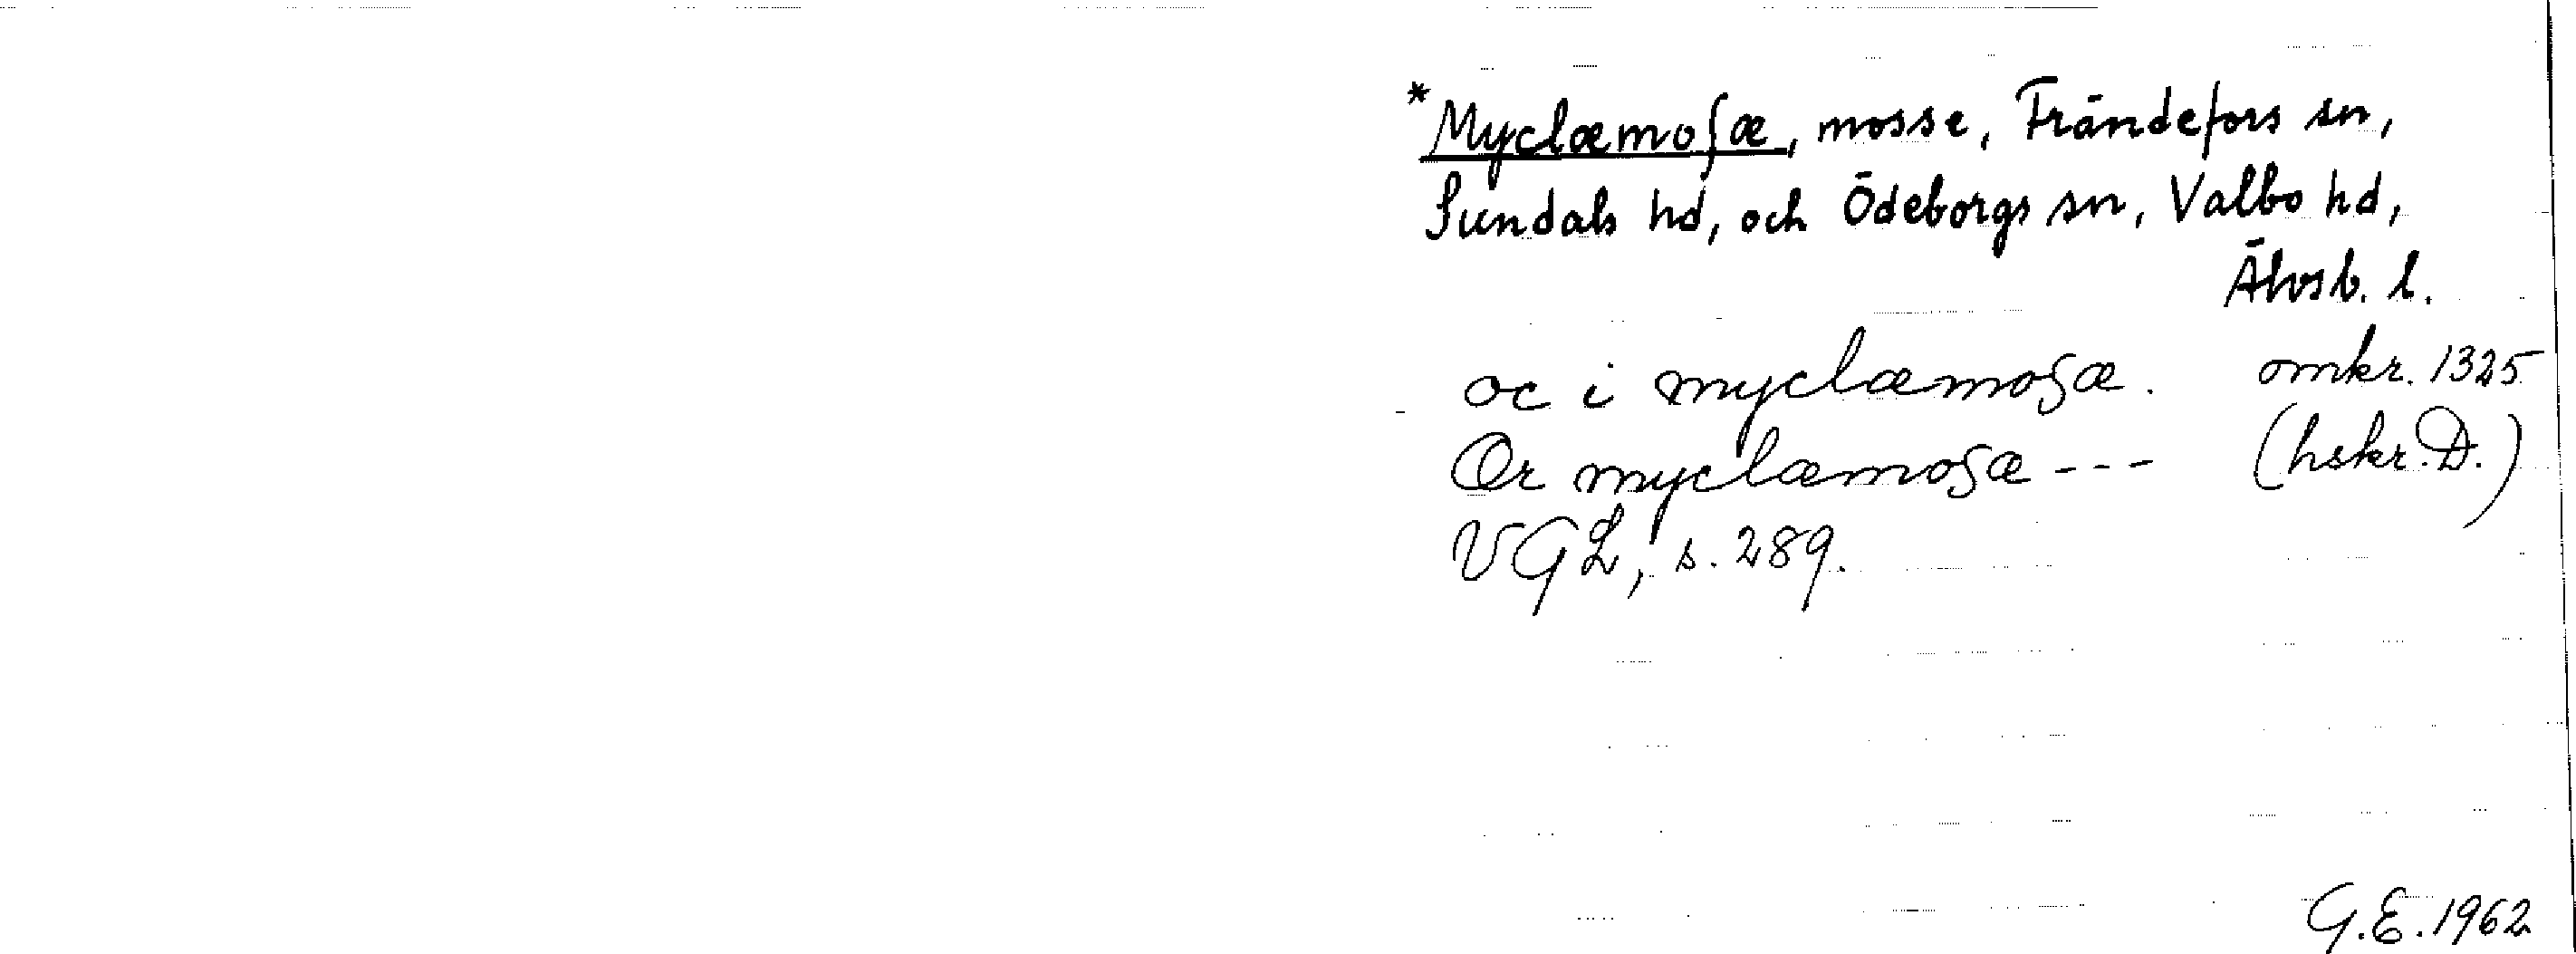 *Myclæmoſæ, mosse, Frändefors sn,
Sundals hd, och Ödeborgs sn, Valbo hd,
Älvsb. l.
oc i myclæmoſæ. omkr. 1325
Or myclæmoſæ --- (hskr. D.)
VGL, s. 289.
G.E. 1962